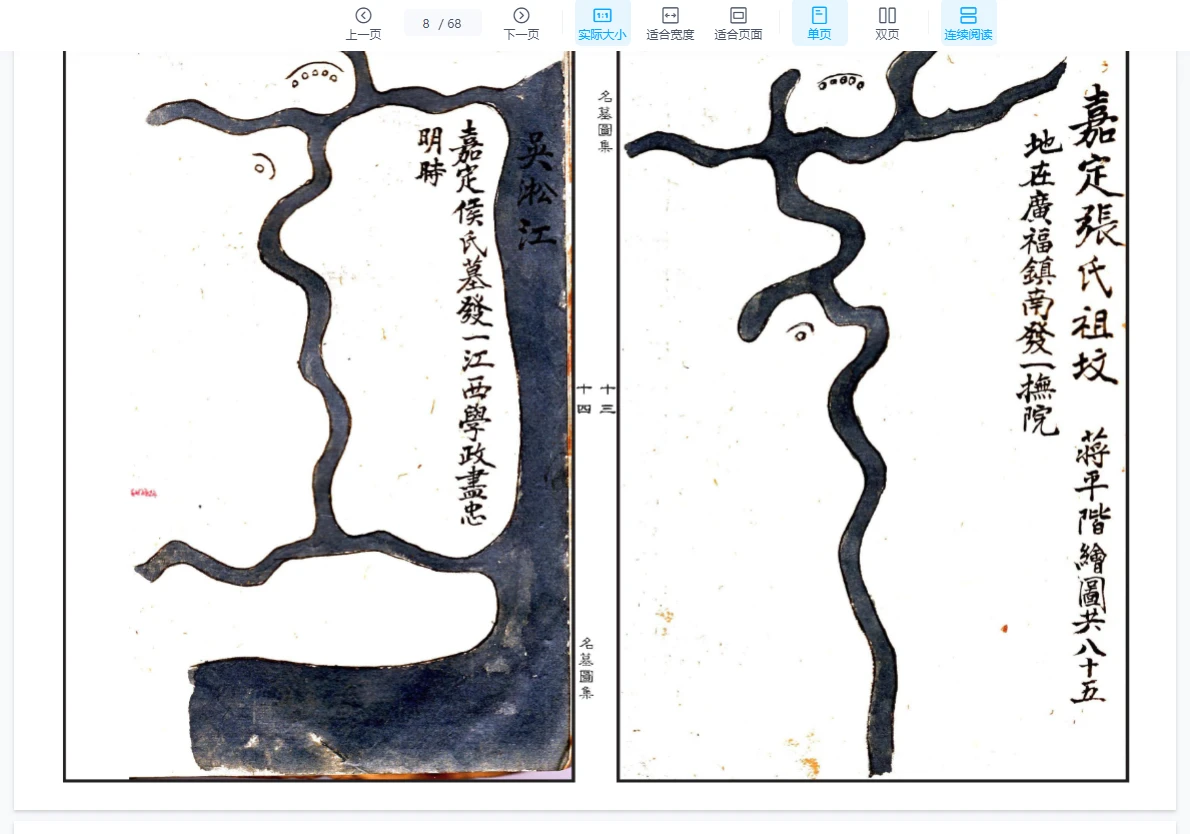 上一页
8 / 68
下一页
1:1
实际大小
适合宽度
适合页面
单页
双页
连续阅读
嘉定張氏祖坟 蔣平階繪圖共八十五
地在廣福鎮南發一撫院
名墓圖集
十三
吳淞江
嘉定侯氏墓發一江西學政盡忠
明時
十四
名墓圖集